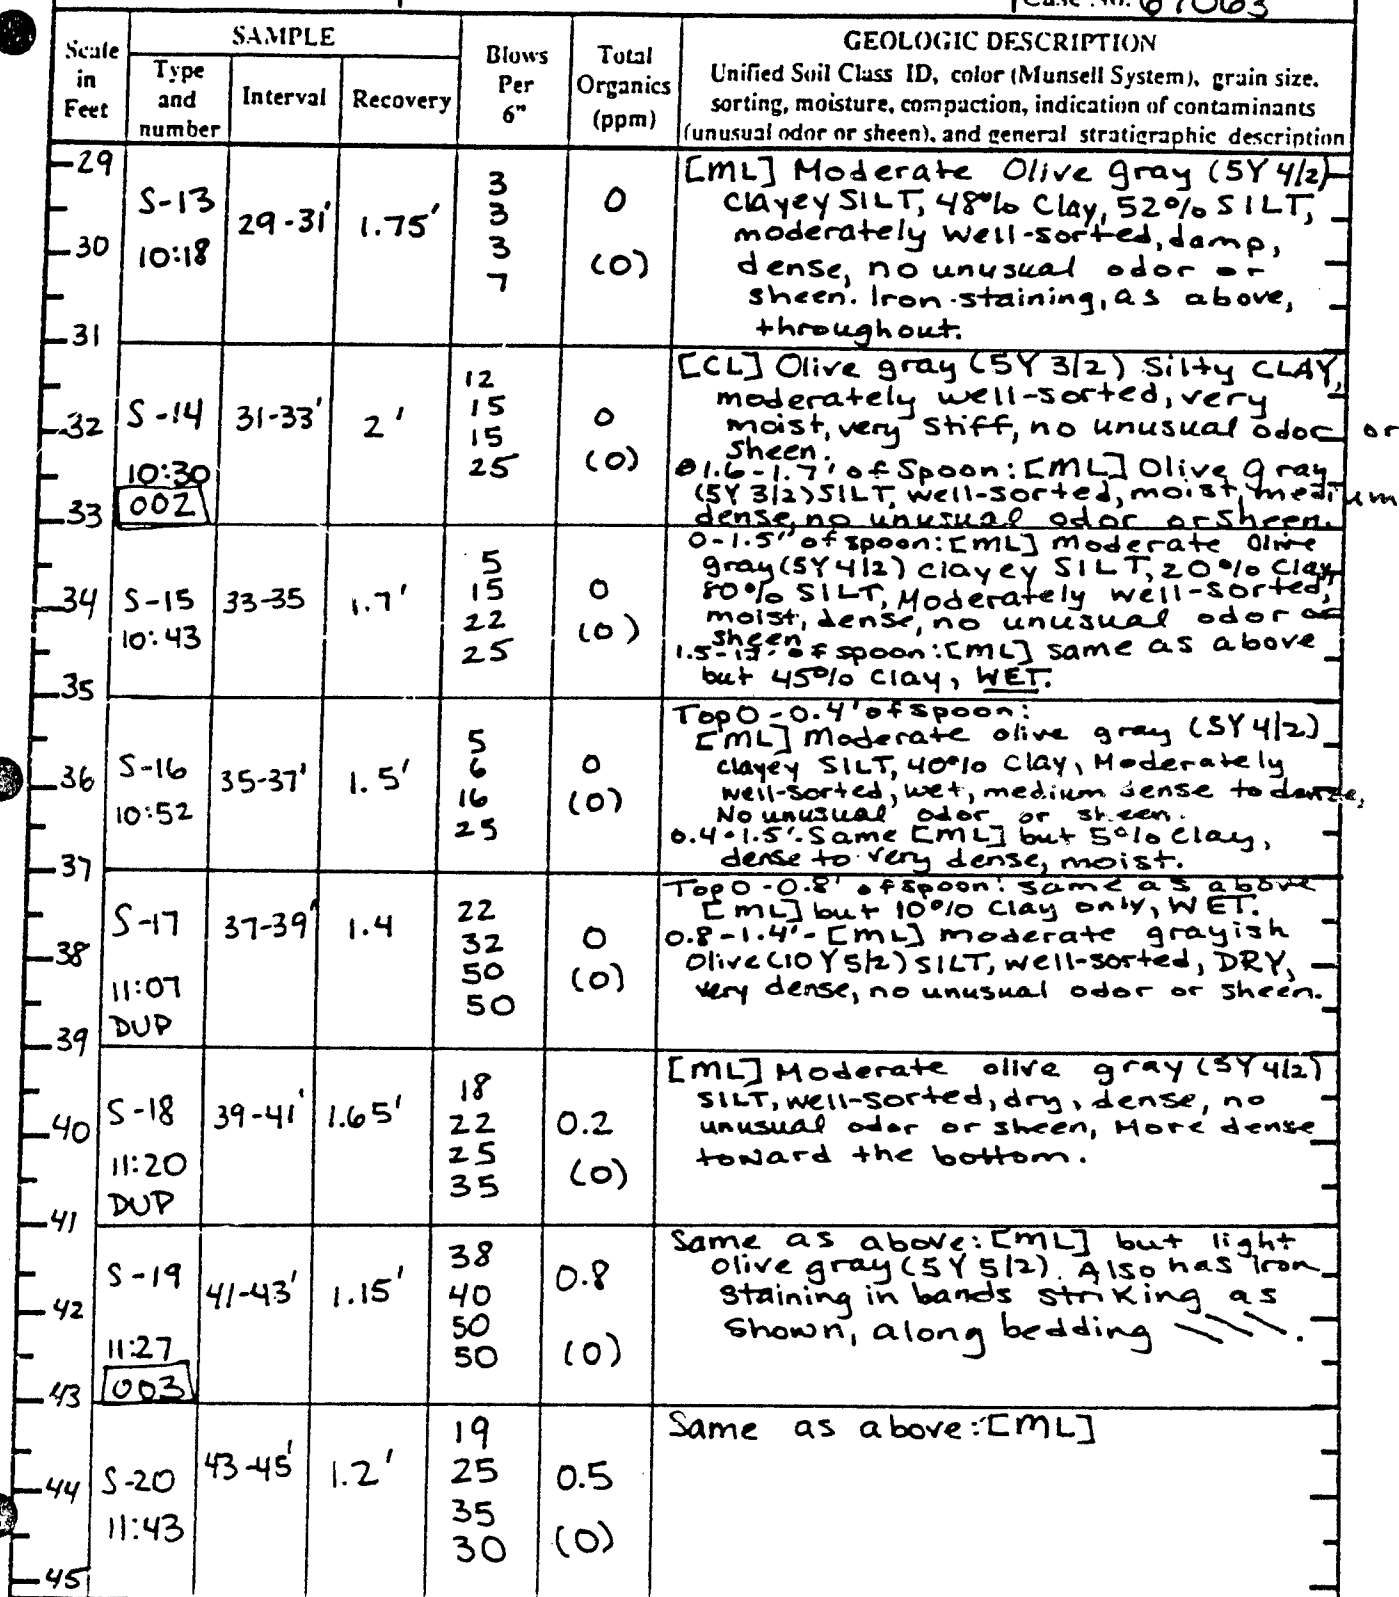 Case No. 67063
SAMPLE
Scale in Feet
Type and number
Interval
Recovery
Blows Per 6"
Total Organics (ppm)
GEOLOGIC DESCRIPTION
Unified Soil Class ID, color (Munsell System), grain size,
sorting, moisture, compaction, indication of contaminants
(unusual odor or sheen), and general stratigraphic description
29
30
31
S-13
10:18
29-31'
1.75'
3
3
3
7
0
(0)
[ML] Moderate Olive gray (5Y 4/2)
clayey SILT, 48% Clay, 52% SILT,
moderately well-sorted, damp,
dense, no unusual odor or
sheen. Iron-staining, as above,
throughout.
32
33
S-14
10:30
002
31-33'
2'
12
15
15
25
0
(0)
[CL] Olive gray (5Y 3/2) Silty CLAY,
moderately well-sorted, very
moist, very stiff, no unusual odor or
sheen.
@1.6-1.7' of Spoon: [ML] Olive gray
(5Y 3/2) SILT, well-sorted, moist, medium
dense, no unusual odor or sheen.
34
35
S-15
10:43
33-35
1.7'
5
15
22
25
0
(0)
0-1.5" of spoon: [ML] Moderate Olive
gray (5Y 4/2) clayey SILT, 20% Clay,
80% SILT, Moderately well-sorted,
moist, dense, no unusual odor or
sheen
1.5-1.7' of spoon: [ML] same as above
but 45% Clay, WET.
36
37
S-16
10:52
35-37'
1.5'
5
6
16
25
0
(0)
Top 0-0.4' of spoon:
[ML] Moderate olive gray (5Y 4/2)
clayey SILT, 40% Clay, Moderately
well-sorted, wet, medium dense to dense,
No unusual odor or sheen.
0.4-1.5'. Same [ML] but 5% Clay,
dense to very dense, moist.
38
39
S-17
11:07
DUP
37-39'
1.4
22
32
50
50
0
(0)
Top 0-0.8' of spoon: same as above
[ML] but 10% Clay only, WET.
0.8-1.4'- [ML] moderate grayish
Olive (10Y 5/2) SILT, well-sorted, DRY,
very dense, no unusual odor or sheen.
40
41
S-18
11:20
DUP
39-41'
1.65'
18
22
25
35
0.2
(0)
[ML] Moderate olive gray (5Y 4/2)
SILT, well-sorted, dry, dense, no
unusual odor or sheen, More dense
toward the bottom.
42
43
S-19
11:27
003
41-43'
1.15'
38
40
50
50
0.8
(0)
Same as above: [ML] but light
Olive gray (5Y 5/2). Also has iron
staining in bands striking as
shown, along bedding \\\\.
44
45
S-20
11:43
43-45'
1.2'
19
25
35
30
0.5
(0)
Same as above: [ML]